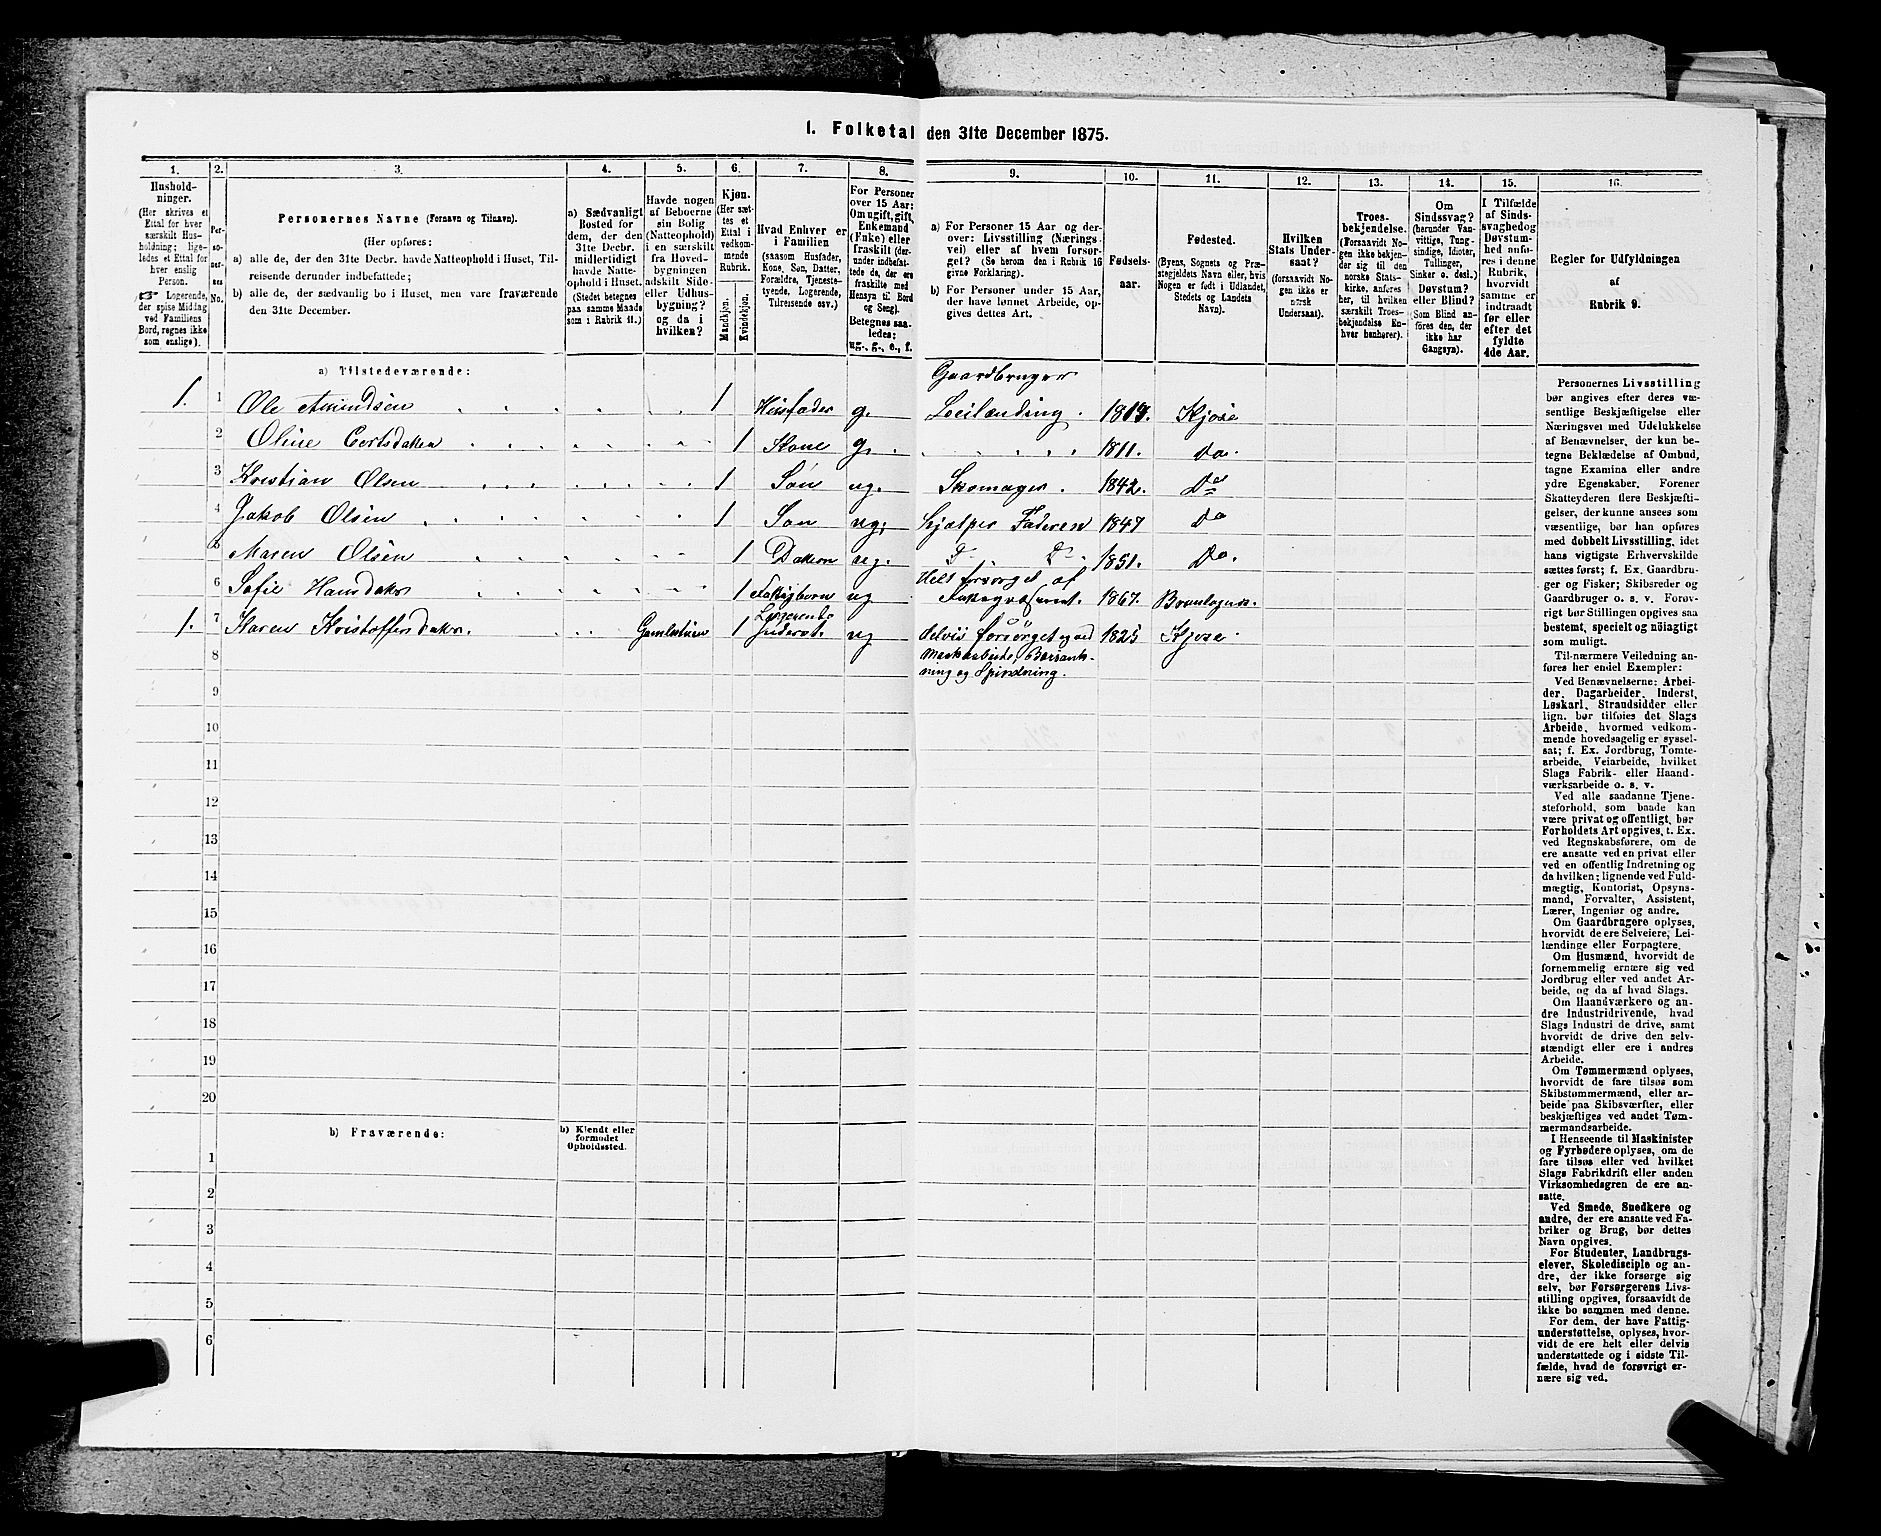 1. Folketal den 31te December 1875.
1. 2. 3. 4. 5. 6. 7. 8. 9. 10. 11. 12. 13. 14. 15. 16.
Hushold-
ninger.
(Her skrives et
Ettal for hver
særskilt Hus-
holdning; lige-
ledes et Ettal for
hver enslig
Person.
☞ Logerende,
der spise Middag
ved Familiens
Bord, regnes ikke
som enslige).
Per-
so-
ner-
nes
No.
Personernes Navne (Fornavn og Tilnavn).
(Her opføres:
a) alle de, der den 31te Decbr. havde Natteophold i Huset, Til-
reisende derunder indbefattede;
b) alle de, der sædvanlig bo i Huset, men vare fraværende
den 31te December.
a) Sædvanligt
Bosted for
dem, der den
31te Decbr.
midlertidigt
havde Natte-
ophold i Huset.
(Stedet betegnes
paa samme Maade
som i Rubrik 11.)
Havde nogen
af Beboerne
sin Bolig
(Natteophold)
i en særskilt
fra Hoved-
bygningen
adskilt Side-
eller Udhus-
bygning?
og da i
hvilken?
Kjøn.
(Her sæt-
tes et
Ettal i
vedkom-
mende
Rubrik.
Mandkjøn.
Kvindekjøn.
Hvad Enhver er
i Familien
(saasom Husfader,
Kone, Søn, Datter,
Forældre, Tjeneste-
tyende, Logerende,
Tilreisende osv.)
For Personer
over 15 Aar:
Om ugift, gift,
Enkemand
(Enke) eller
fraskilt (der-
under indbefat-
tede de, der ere
fraskilte med
Hensyn til Bord
og Seng).
Betegnes saa-
ledes:
ug., g., e., f.
a) For Personer 15 Aar og der-
over: Livsstilling (Nærings-
vei) eller af hvem forsør-
get? (Se herom den i Rubrik 16
givne Forklaring).
b) For Personer under 15 Aar,
der have lønnet Arbeide, op-
gives dettes Art.
Fødsels-
aar.
Fødested.
(Byens, Sognets og Præ-
stegjeldets Navn eller, hvis
Nogen er født i Udlandet,
Stedets og Landets
Navn).
Hvilken
Stats Under-
saat?
(forsaavidt No-
gen ikke er
norsk
Undersaat).
Troes-
bekjendelse.
(Forsaavidt No-
gen ikke bekjen-
der sig til den
norske Stats-
kirke, anføres
her, til hvilken
særskilt Troes-
bekjendelse En-
hver henhører).
Om
Sindssvag?
(herunder Van-
vittige, Tung-
sindige, Idioter,
Tullinger,
Sinker o. desl.)
Døvstum?
eller Blind?
(Som Blind an-
føres den, der
ikke har
Gangsyn).
I Tilfælde
af Sinds-
svaghed og
Døvstum-
hed anfø-
res i denne
Rubrik,
hvorvidt
samme er
indtraadt
før eller
efter det
fyldte
4de Aar.
Regler for Udfyldningen
af
Rubrik 9.
a) Tilstedeværende:
Gaardbruger
1. 1 Ole Amundsen 1 Husfader g. Leilænding. 1819. Kjose
2 Oline Evertsdatter 1 Kone g. 1811. Do.
3 Kristian Olsen 1 Søn ug. Skomager. 1842. Do
4 Jakob Olsen 1 Søn ug. Hjælper Faderen 1847 Do
5 Maren Olsen 1 Datter ug. D. Do. 1851. Do.
Helt forsørget af
6 Sofie Hansdatter 1 Fattigbarn ug Fattigvæsenet. 1867. Brunlagnæs.
Logerende
1. 7 Karen Kristoffersdatter. 1 Inderst. ug Delvis forsørget ved 1825 Kjose.
8
ning og Spindning.
9
10
11
12
13
14
15
16
17
18
19
20
b) Fraværende:
b) Kjendt eller
formodet
Opholdssted.
1
2
3
4
5
6
Personernes Livsstilling
bør angives efter deres væ-
sentlige Beskjæftigelse eller
Næringsvei med Udelukkelse
af Benævnelser, der kun be-
tegne Beklædelse af Ombud,
tagne Examina eller andre
ydre Egenskaber. Forener
Skatteyderen flere Beskjæfti-
gelser, der kunne ansees som
væsentlige, bør han opføres
med dobbelt Livsstilling, idet
hans vigtigste Erhvervskilde
sættes først; f. Ex. Gaardbru-
ger og Fisker; Skibsreder og
Gaardbruger o. s. v. Forøv-
rigt bør Stillingen opgives saa
bestemt, specielt og nøiagtigt
som muligt.
Til nærmere Veiledning an-
føres her endel Exempler:
Ved Benævnelserne: Arbei-
der, Dagarbeider, Inderst,
Løskarl, Strandsidder eller
lign. bør tilføies det Slags
Arbeide, hvormed vedkom-
mende hovedsagelig er syssel-
sat; f. Ex. Jordbrug, Tomte-
arbeide, Veiarbeide, hvilket
Slags Fabrik- eller Haand-
værksarbeide o. s. v.
Ved alle saadanne Tjene-
steforhold, som baade kan
være privat og offentligt, bør
Forholdets Art opgives, t. Ex.
ved Regnskabsførere, om de
ere ansatte ved en privat eller
ved en offentlig Indretning og
da hvilken; lignende ved Fuld-
mægtig, Kontorist, Opsyns-
mand, Forvalter, Assistent,
Lærer, Ingeniør og andre.
Om Gaardbrugere oplyses,
hvorvidt de ere Selveiere, Lei-
lændinge eller Forpagtere.
Om Husmænd, hvorvidt de
fornemmelig ernære sig ved
Jordbrug eller ved andet Ar-
beide, og da af hvad Slags.
Om Haandværkere og an-
dre Industridrivende, hvad
Slags Industri de drive, samt
hvorvidt de drive den selv-
stændigt eller ere i andres
Arbeide.
Om Tømmermænd oplyses,
hvorvidt de fare tilsøs som
Skibstømmermænd, eller ar-
beide paa Skibsværfter, eller
beskjæftiges ved andet Tøm-
mermandsarbeide.
I Henseende til Maskinister
og Fyrbødere oplyses, om de
fare tilsøs eller ved hvilket
Slags Fabrikdrift eller anden
Virksomhedsgren de ere an-
satte.
Ved Smede, Snedkere og
andre, der ere ansatte ved Fa-
briker og Brug, bør dettes
Navn opgives.
For Studenter, Landbrugs-
elever, Skoledisciple og an-
dre, der ikke forsørge sig
selv, bør Forsørgerens Livs-
stilling opgives, forsaavidt de
ikke bo sammen med denne.
For dem, der have Fattig-
understøttelse, oplyses, hvor-
vidt de ere helt eller delvis
understøttede og i sidste Til-
fælde, hvad de forøvrigt er-
nære sig ved.